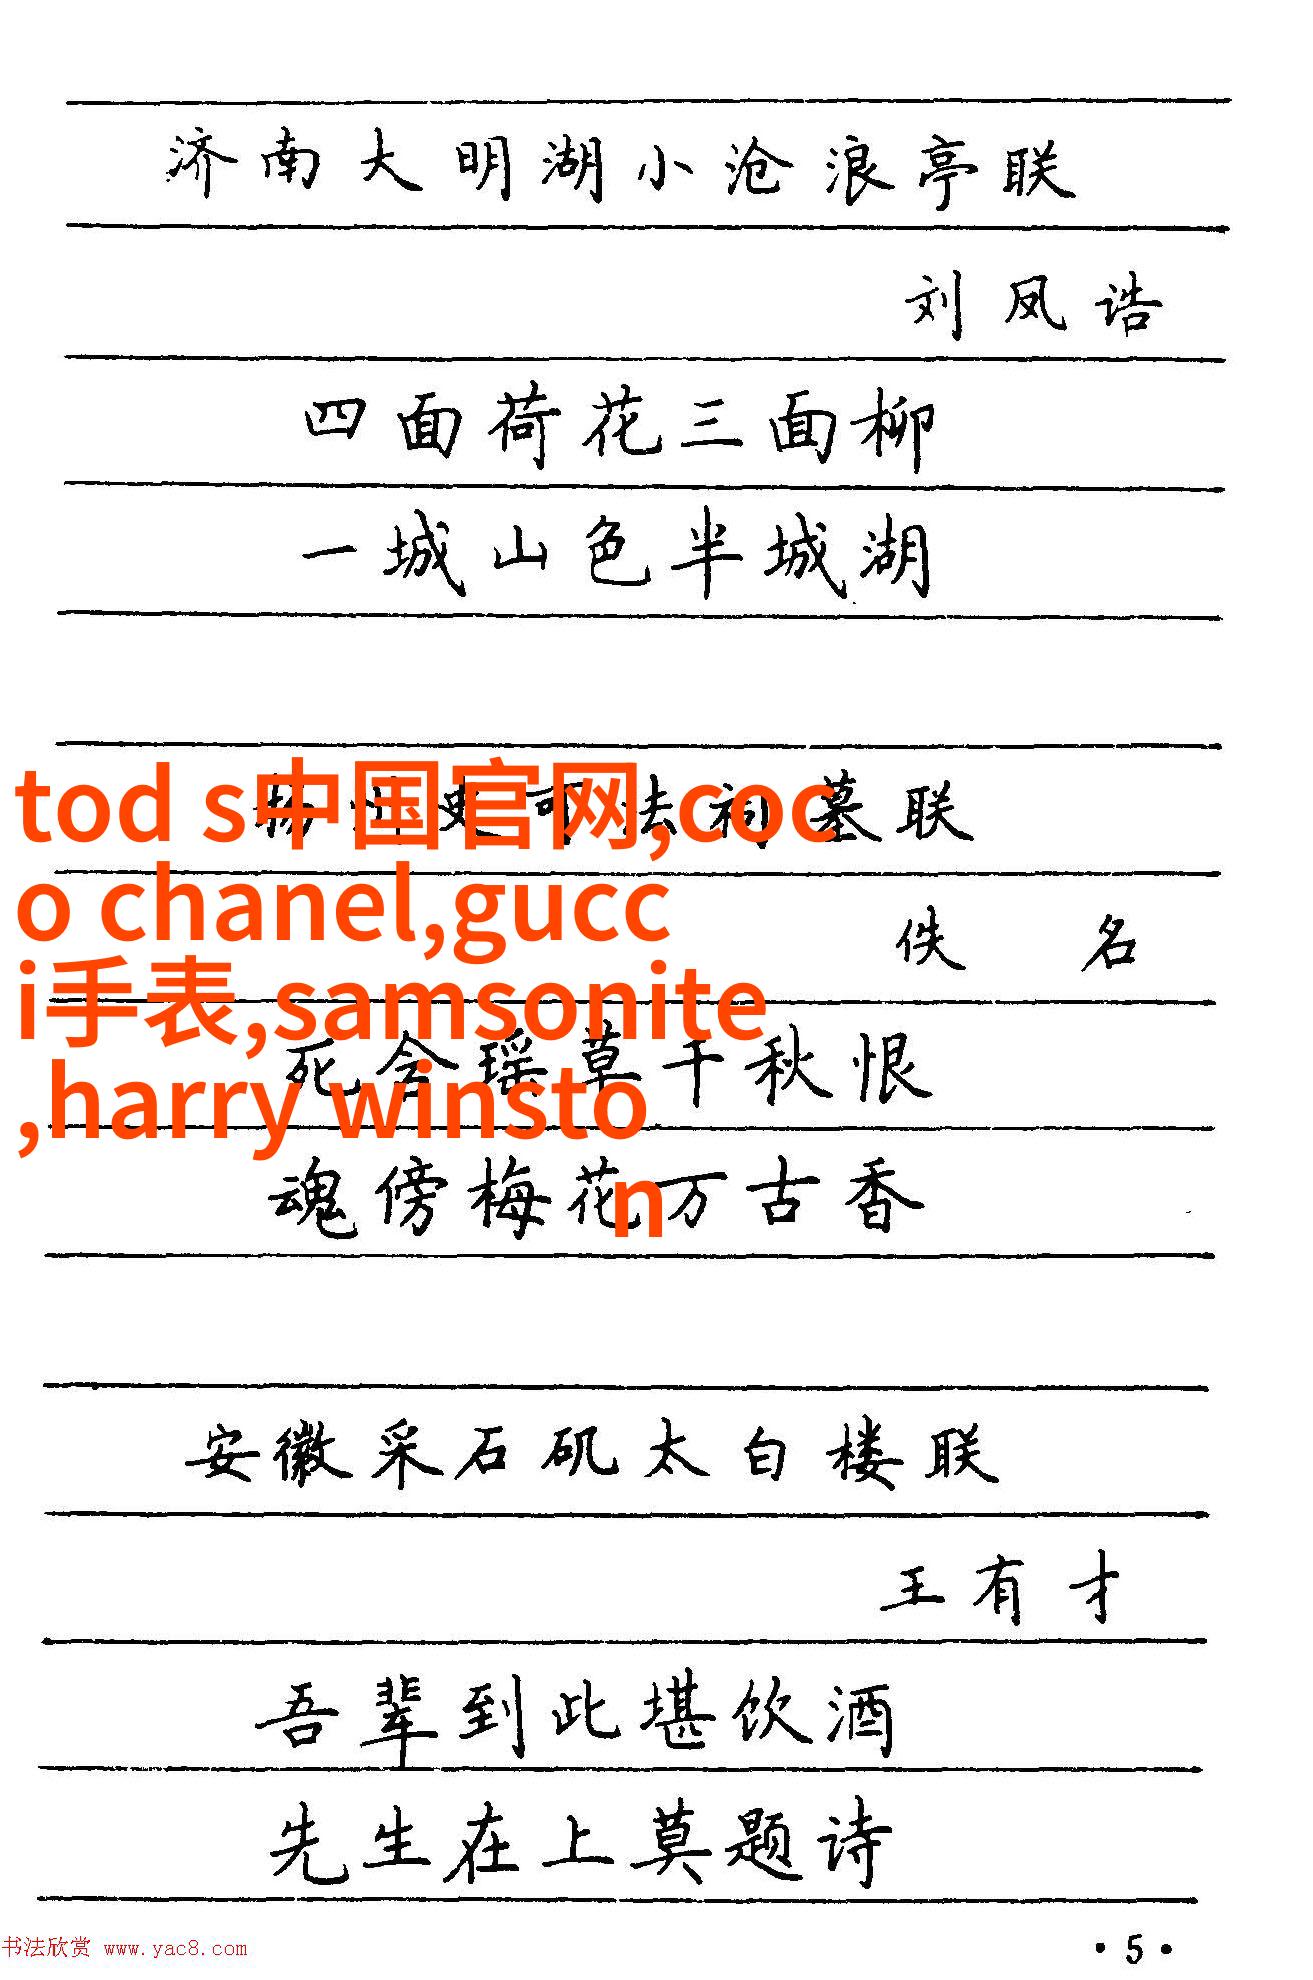 济南大明湖小沧浪亭联
刘凤诰
四面荷花三面柳
一城山色半城湖
扬州史可法祠墓联
tod s中国官网,coc
o chanel,gucc
佚名
i手表,samsonite
死含瑶草千秋恨
,harry winsto
n
魂傍梅花万古香
安徽采石矶太白楼联
王有才
吾辈到此堪饮酒
先生在上莫题诗
书法欣赏 www.yac8.com
·5·